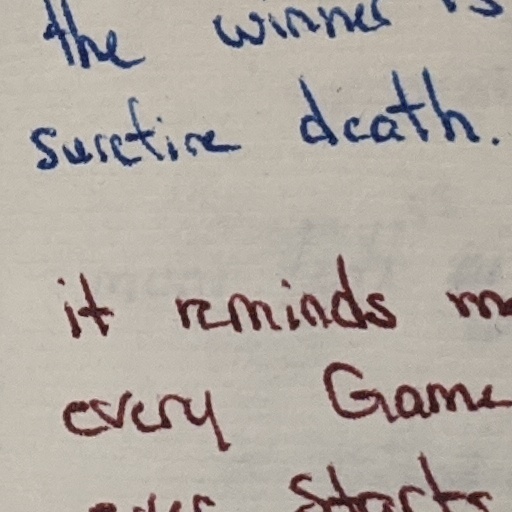 the winner is
surefire death.
it reminds me
every Game
ever starts